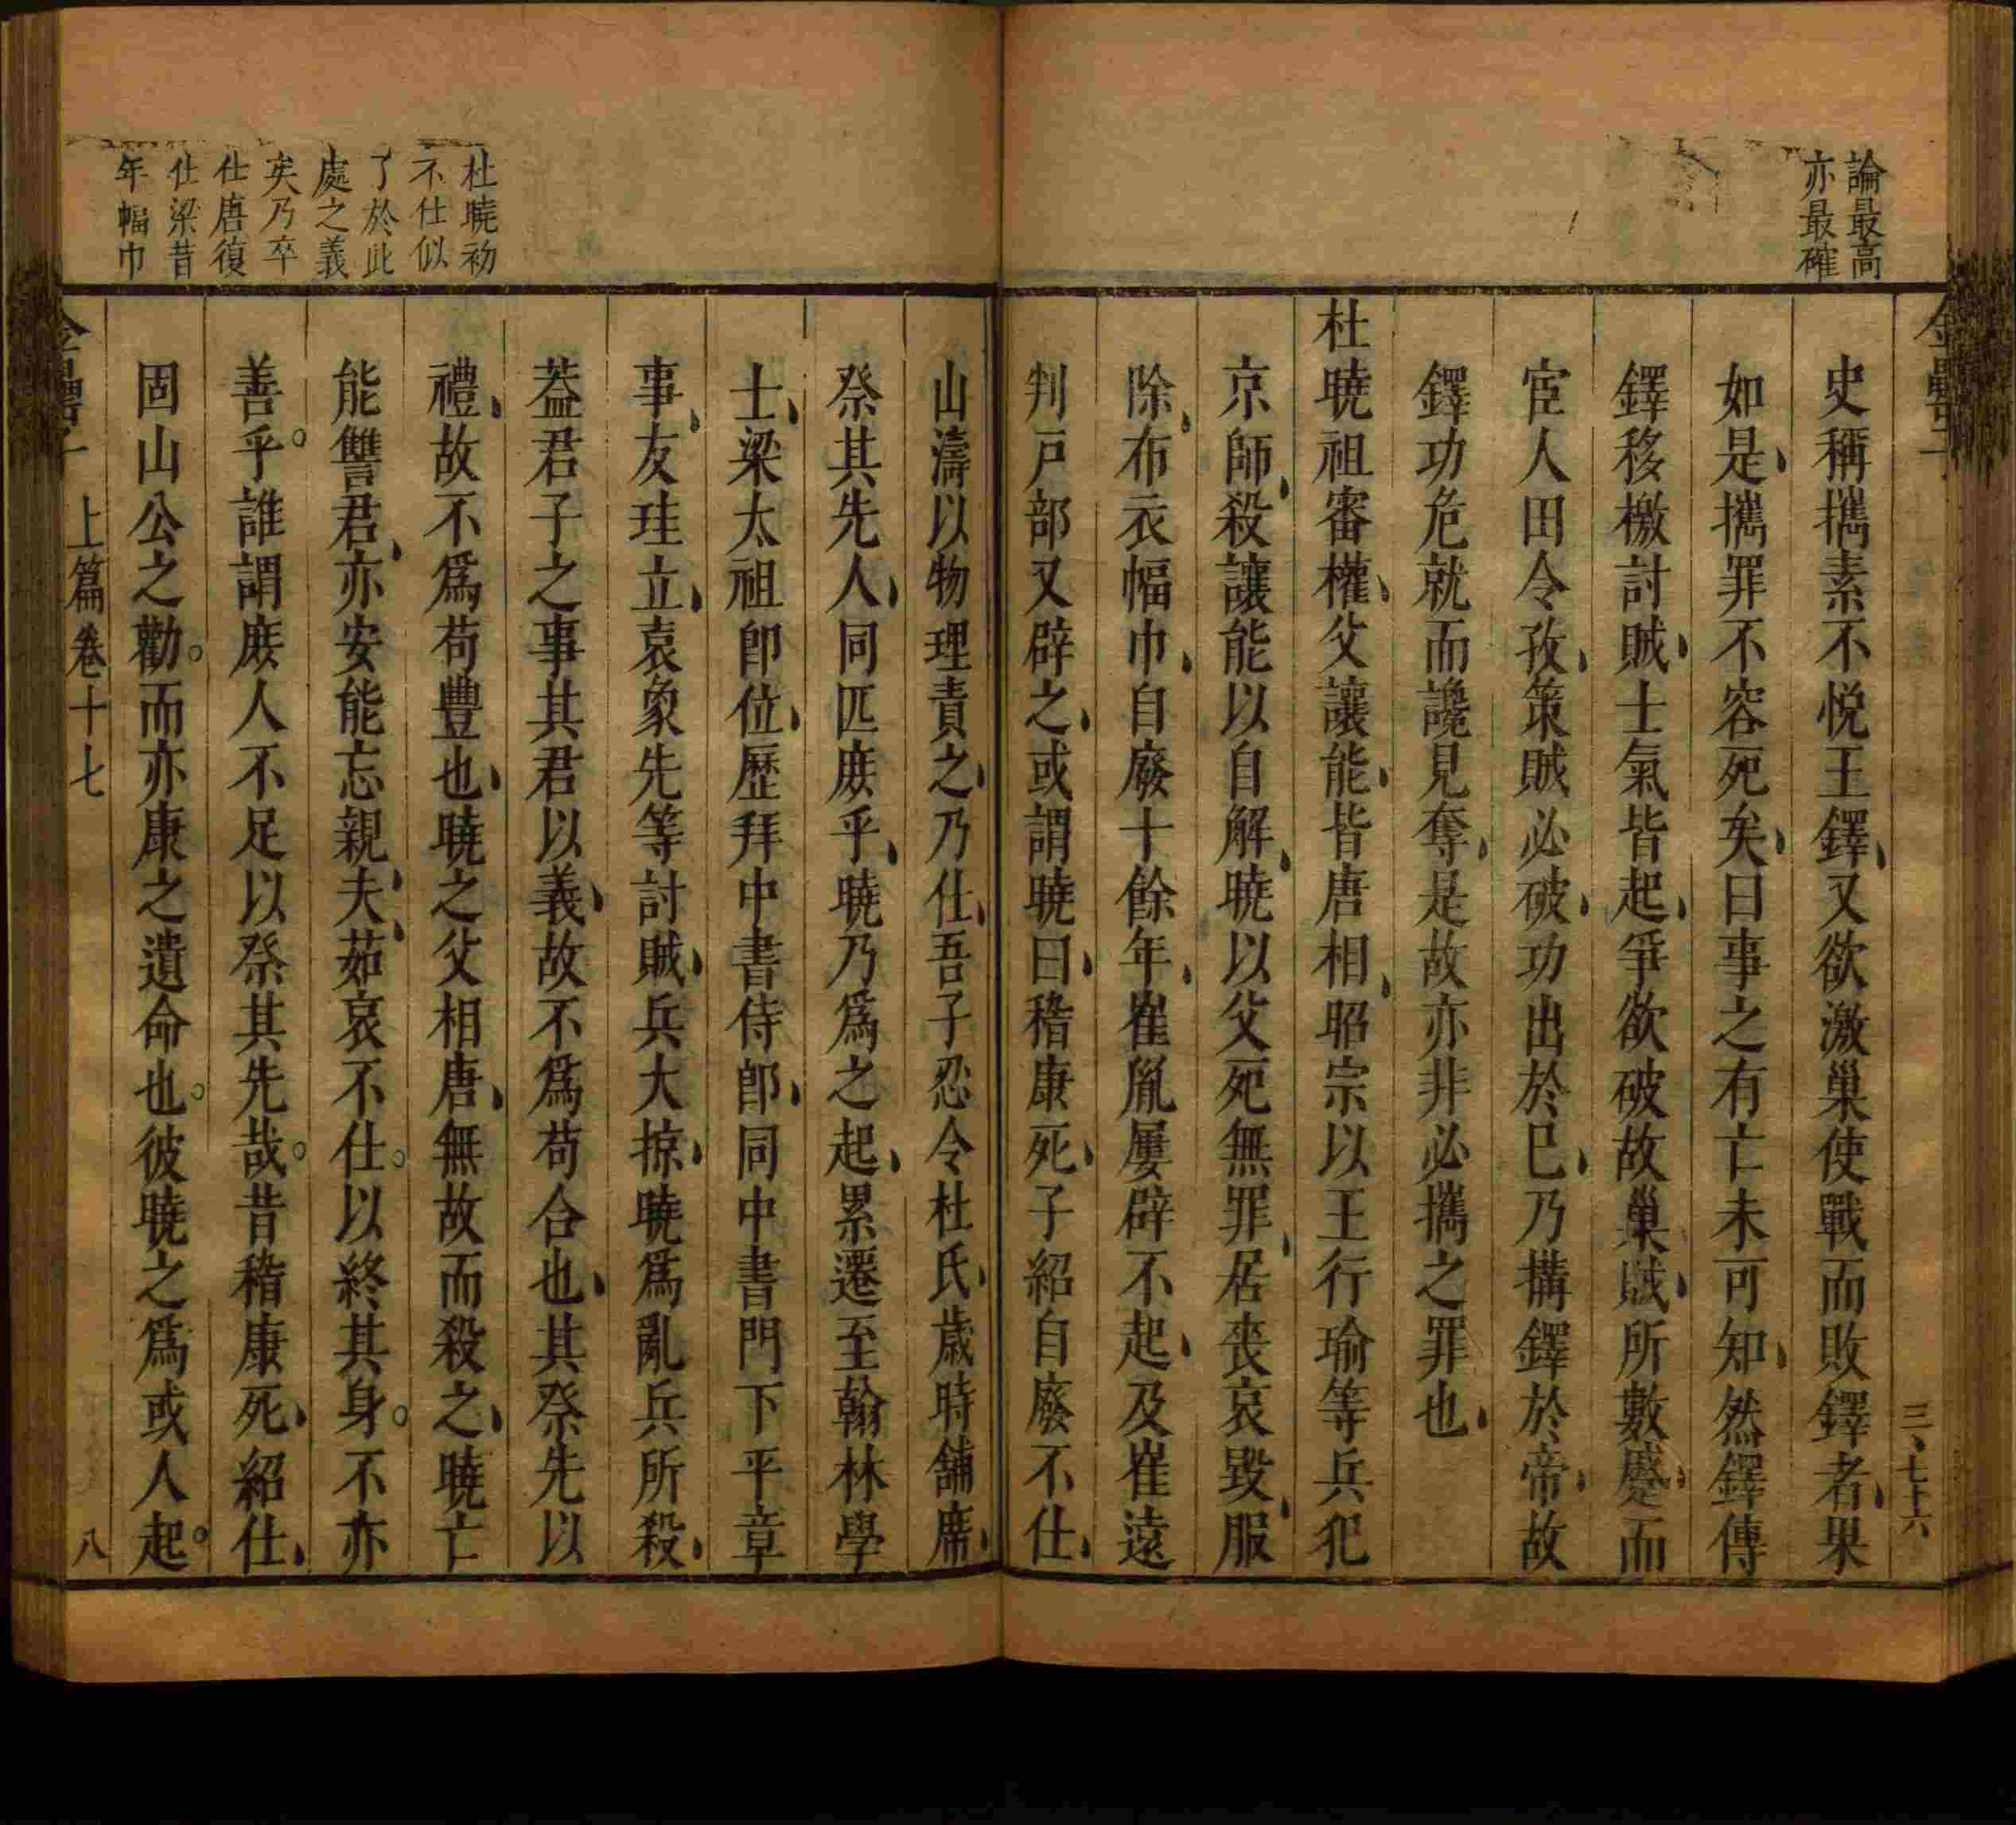 論最高
亦最確
史稱攜素不悅王鐸又欲激巢使戰而敗鐸者果
如是攜罪不容死矣曰事之有亡未可知然鐸傳
鐸移檄討賊士氣皆起爭欲破故巢賊所數蹙而
宦人田令孜策賊必破功出於巳乃搆鐸於帝故
鐸功危就而讒見奪是故亦非必攜之罪也
杜曉祖審權父讓能皆唐相昭宗以王行瑜等兵犯
京師殺讓能以自解曉以父死無罪居喪哀毀服
除布衣幅巾自廢十餘年崔胤屢辟不起及崔遠
判戸部又辟之或謂曉曰稽康死子紹自廢不仕
三七十六
杜曉初
不仕似
了於此
處之義
矣乃卒
仕唐復
仕梁昔
年幅巾
山濤以物理責之乃仕吾子忍令杜氏歲時舖席
祭其先人同匹庻乎曉乃爲之起累遷至翰林學
士梁太祖卽位歷拜中書侍郎同中書門下平章
事友珪立袁象先等討賊兵大掠曉爲亂兵所殺
葢君子之事其君以義故不爲苟合也其祭先以
禮故不爲苟豐也曉之父相唐無故而殺之曉亡
能讐君亦安能忘親夫茹哀不仕以終其身不亦
善乎誰謂庻人不足以祭其先哉昔稽康死紹仕
固山公之勸而亦康之遺命也彼曉之爲或人起
上篇卷十七
八